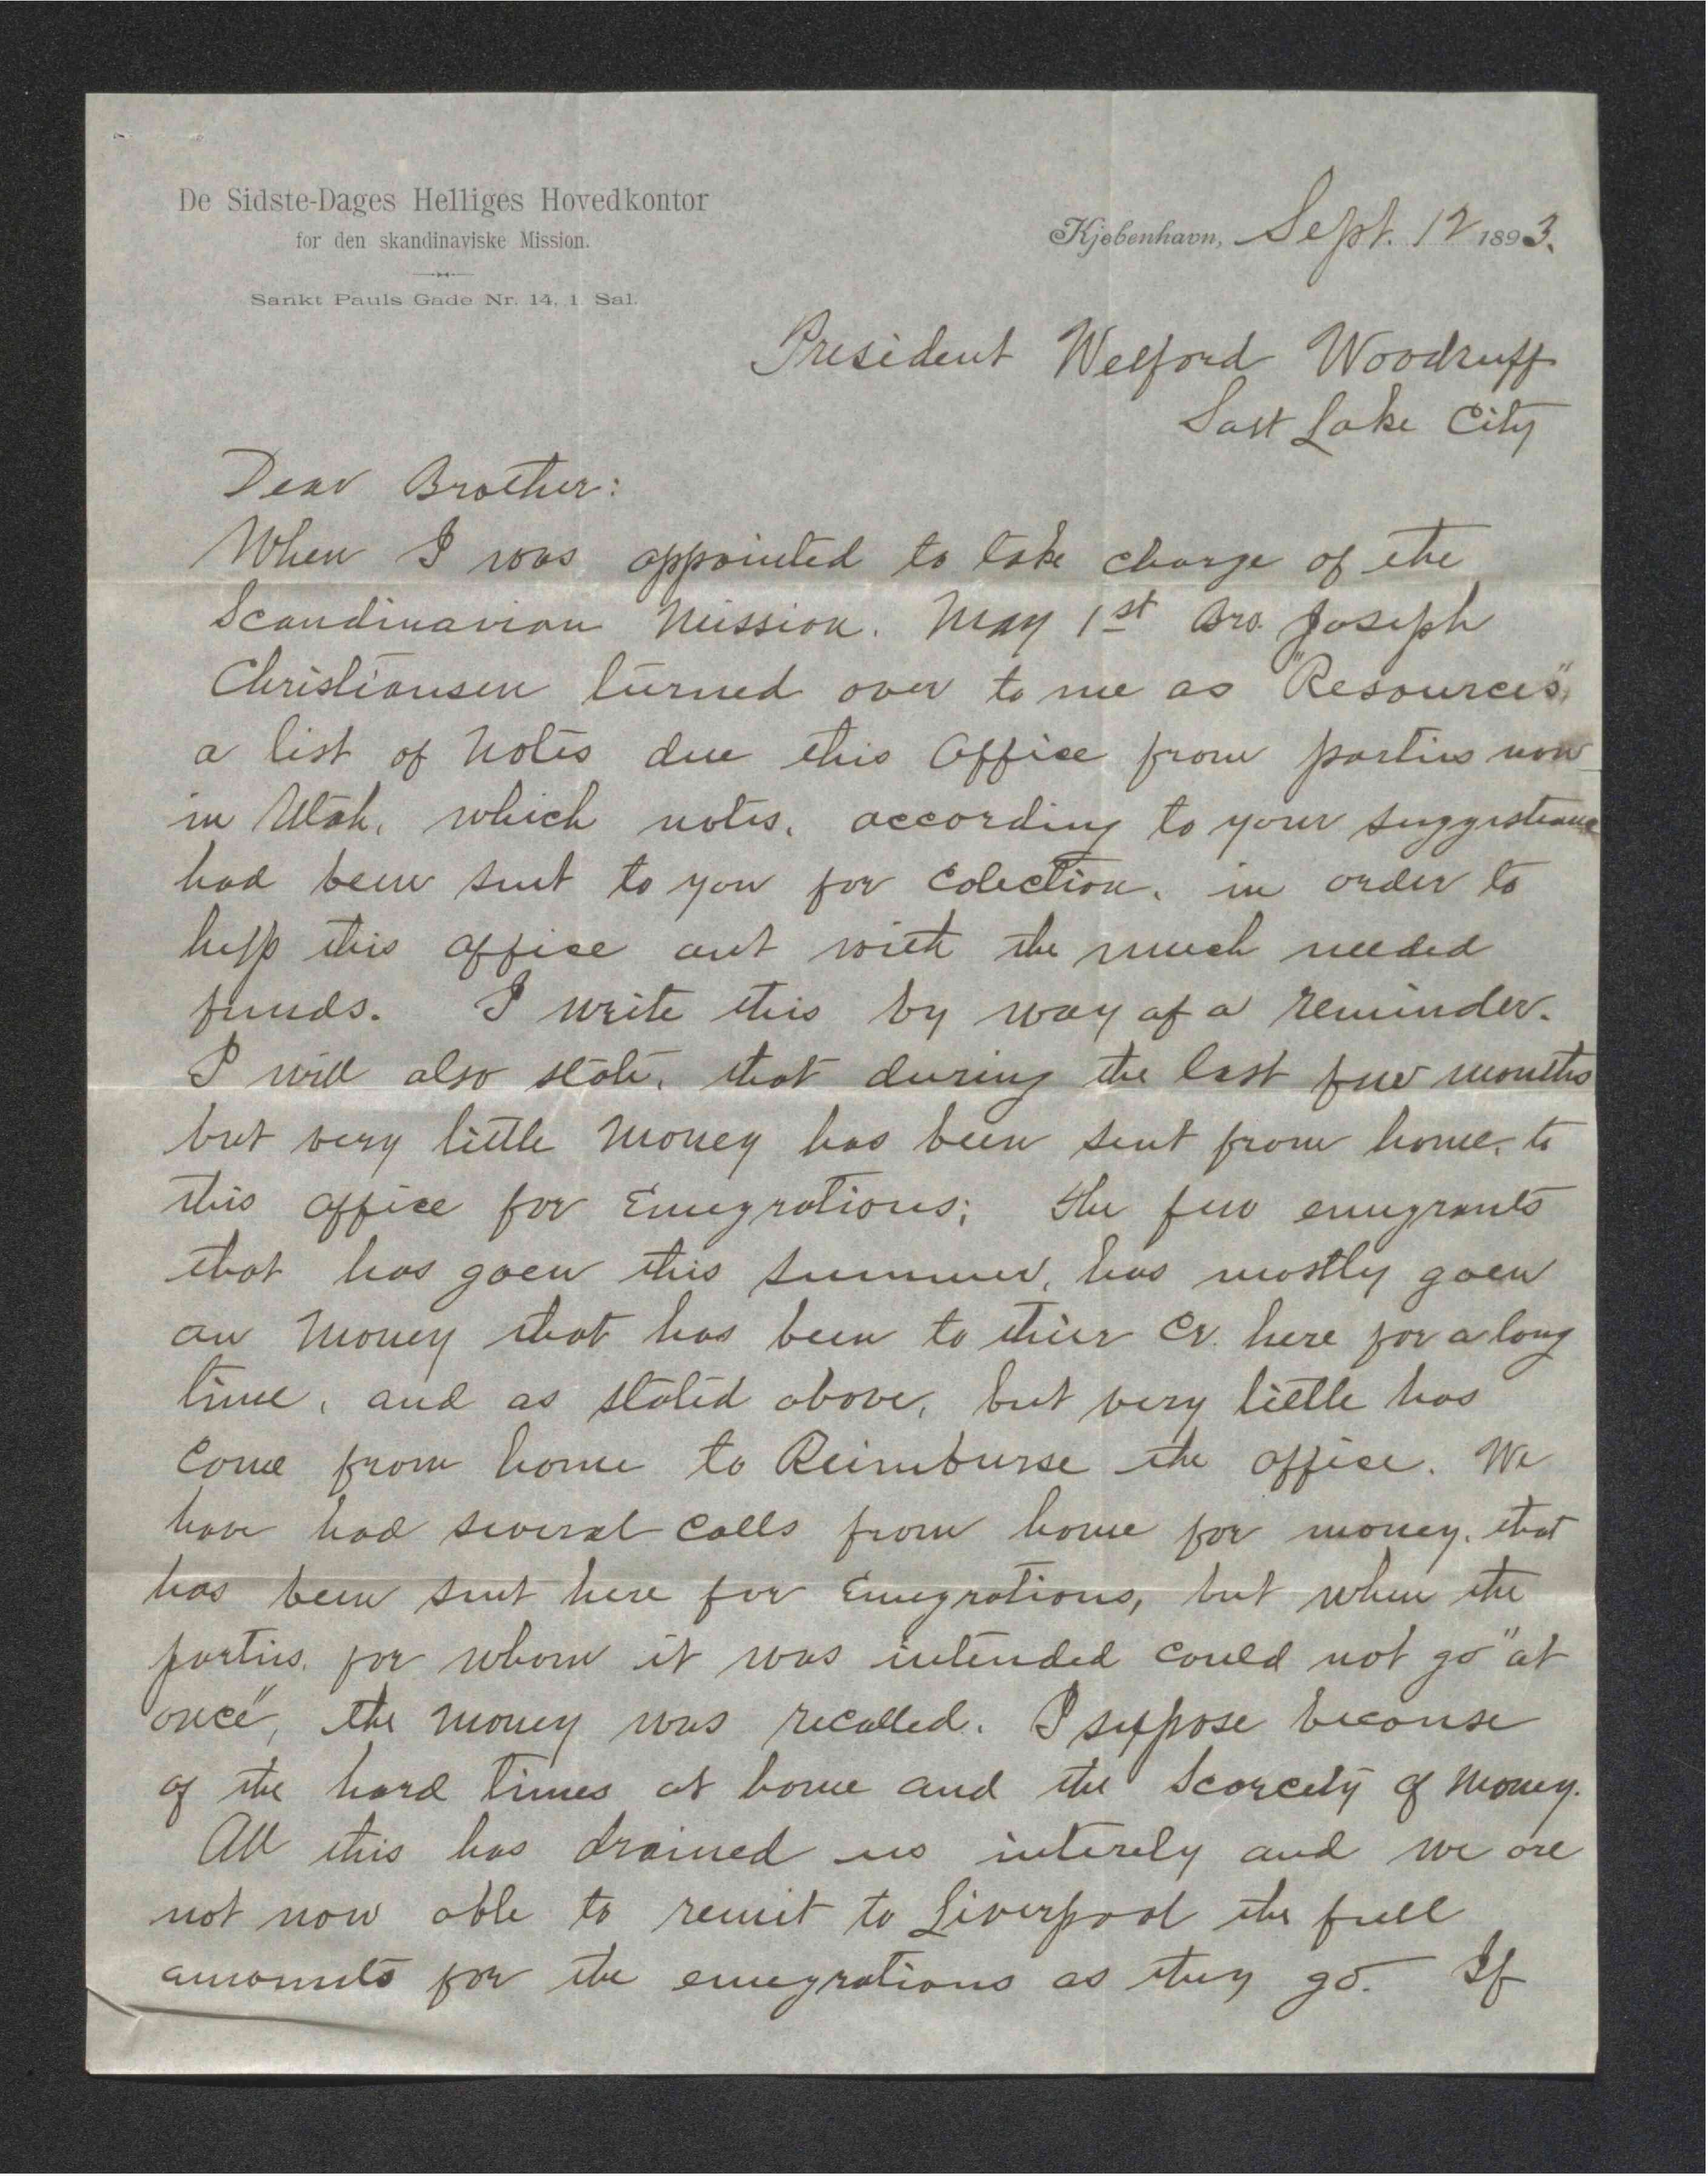 De Sidste-Dages Helliges Hovedkontor
for den skandinaviske Mission.
Sankt Pauls Gade Nr. 14, 1. Sal.
Kjøbenhavn, Sept. 12 1893.
President Welford Woodruff
Salt Lake City
Dear Brother:
When I was appointed to take charge of the
Scandinavian Mission. May 1st Bro. Joseph
Christiansen turned over to me as "Resources",
a list of Notes due this Office from parties now
in Utah, which notes, according to your suggestions
had been sent to you for Colection, in order to
help this office out with the much needed
funds. I write this by way of a reminder.
I will also state, that during the last few months
but very little Money has been sent from home, to
this office for Emegrations; the few emegrants
that has goen this summer, has mostly goen
on Money that has been to thier Cr. here for a long
time, and as stated above, but very little has
Come from home to Reimburse the office. We
have had several Calls from home for money, that
has been sent here for Emegrations, but when the
parties, for whom it was intended Could not go "at
once", the Money was recalled. I suppose because
of the hard times at home and the Scarcety of Money.
All this has drained us interely and we are
not now able to remit to Liverpool the full
amounts for the emegrations as they go. If